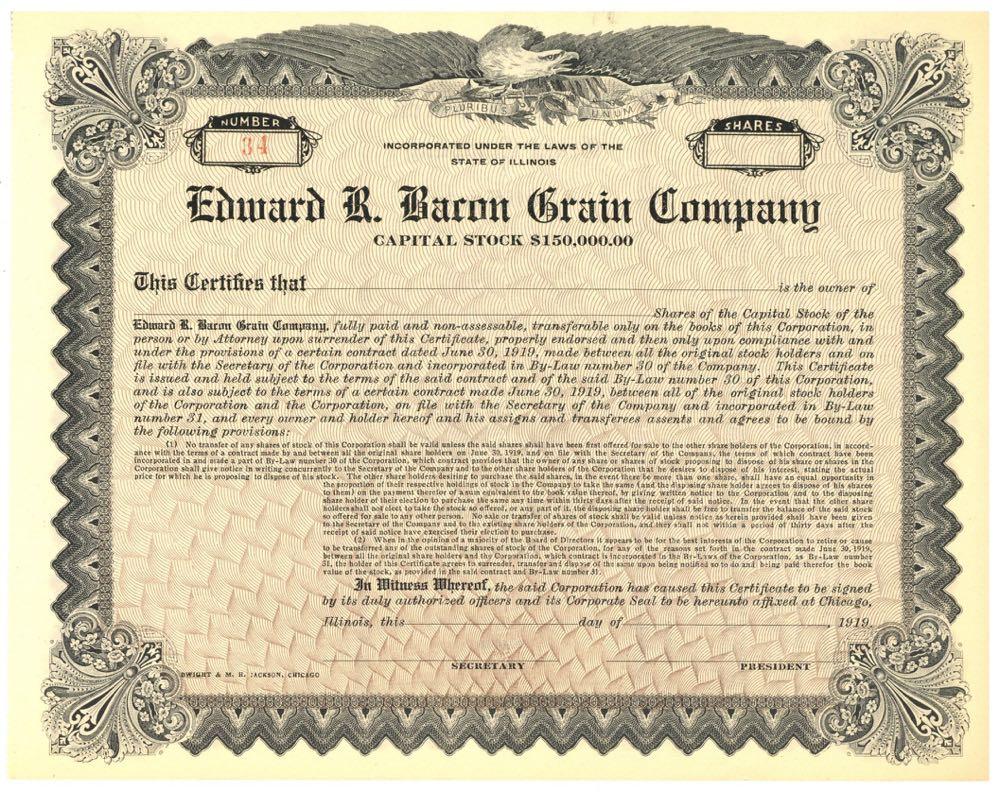 PLURIBUS UNUM
NUMBER
34
SHARES
INCORPORATED UNDER THE LAWS OF THE
STATE OF ILLINOIS
Edward R. Bacon Grain Company
CAPITAL STOCK $150,000.00
This Certifies that is the owner of
Shares of the Capital Stock of the
Edward R. Bacon Grain Company, fully paid and non-assessable, transferable only on the books of this Corporation, in
person or by Attorney upon surrender of this Certificate, properly endorsed and then only upon compliance with and
under the provisions of a certain contract dated June 30, 1919, made between all the original stock holders and on
file with the Secretary of the Corporation and incorporated in By-Law number 30 of the Company. This Certificate
is issued and held subject to the terms of the said contract and of the said By-Law number 30 of this Corporation,
and is also subject to the terms of a certain contract made June 30, 1919, between all of the original stock holders
of the Corporation and the Corporation, on file with the Secretary of the Company and incorporated in By-Law
number 31, and every owner and holder hereof and his assigns and transferees assents and agrees to be bound by
the following provisions:
(1) No transfer of any shares of stock of this Corporation shall be valid unless the said shares shall have been first offered for sale to the other share holders of the Corporation, in accord-
ance with the terms of a contract made by and between all the original share holders on June 30, 1919, and on file with the Secretary of the Company, the terms of which contract have been
incorporated in and made a part of By-Law number 30 of the Corporation, which contract provides that the owner of any share or shares of stock proposing to dispose of his share or shares in the
Corporation shall give notice in writing concurrently to the Secretary of the Company and to the other share holders of the Corporation that he desires to dispose of his interest, stating the actual
price for which he is proposing to dispose of his stock. The other share holders desiring to purchase the said shares, in the event there be more than one share, shall have an equal opportunity in
the proportion of their respective holdings of stock in the Company to take the same (and the disposing share holder agrees to dispose of his shares
to them) on the payment therefor of a sum equivalent to the book value thereof, by giving written notice to the Corporation and to the disposing
share holder of their election to purchase the same any time within thirty days after the receipt of said notice. In the event that the other share
holders shall not elect to take the stock so offered, or any part of it, the disposing share holder shall be free to transfer the balance of the said stock
so offered for sale to any other person. No sale or transfer of shares of stock shall be valid unless notice as herein provided shall have been given
to the Secretary of the Company and to the existing share holders of the Corporation, and they shall not within a period of thirty days after the
receipt of said notice have exercised their election to purchase.
(2) When in the opinion of a majority of the Board of Directors it appears to be for the best interests of the Corporation to retire or cause
to be transferred any of the outstanding shares of stock of the Corporation, for any of the reasons set forth in the contract made June 30, 1919,
between all the original share holders and the Corporation, which contract is incorporated in the By-Laws of the Corporation, as By-Law number
31, the holder of this Certificate agrees to surrender, transfer and dispose of the same upon being notified so to do and being paid therefor the book
value of the stock, as provided in the said contract and By-Law number 31.
In Witness Whereof, the said Corporation has caused this Certificate to be signed
by its duly authorized officers and its Corporate Seal to be hereunto affixed at Chicago,
Illinois, this day of , 1919.
SECRETARY PRESIDENT
DWIGHT & M. H. JACKSON, CHICAGO